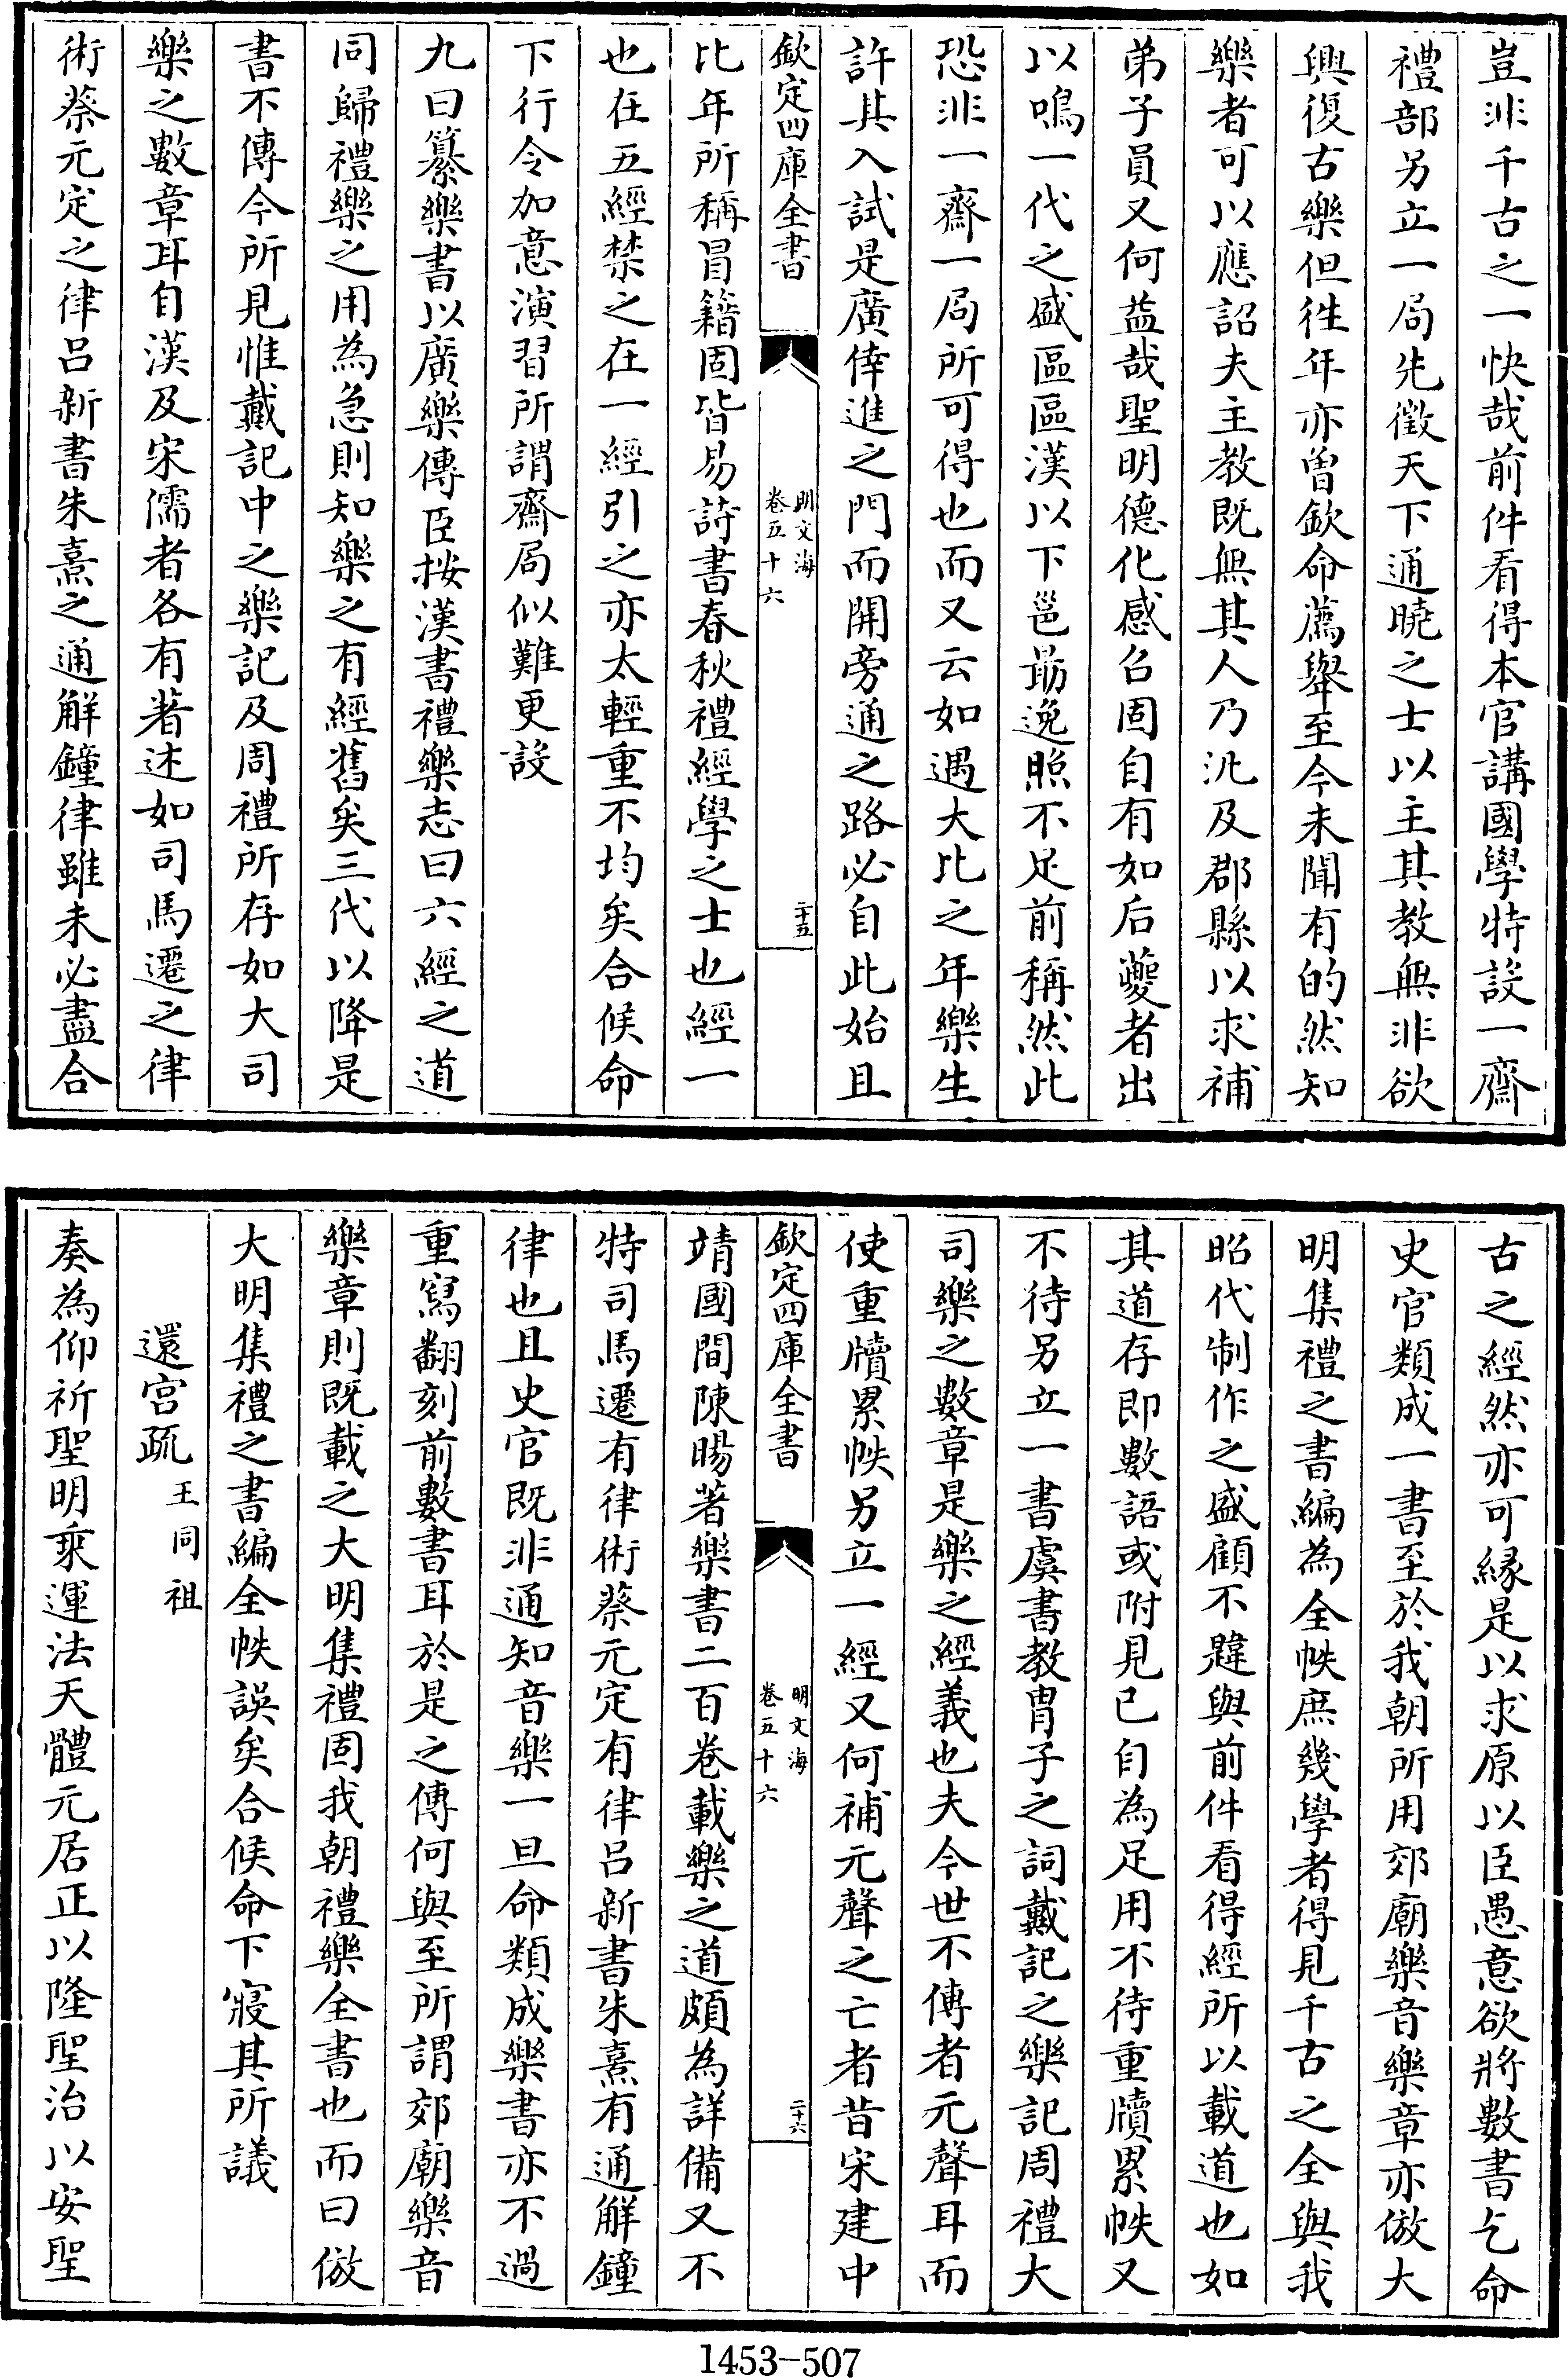 豈非千古之一快哉前件看得本官講國學特設一齋
禮部另立一局先徵天下通曉之士以主其教無非欲
興復古樂但徃年亦曽欽命薦舉至今未聞有的然知
樂者可以應詔夫主教既無其人乃汎及郡縣以求補
弟子員又何益哉聖明德化感召固自有如后夔者出
以鳴一代之盛區區漢以下邕勗逸照不足前稱然此
恐非一齋一局所可得也而又云如遇大比之年樂生
許其入試是廣倖進之門而開旁通之路必自此始且
欽定四庫全書
明文海
卷五十六
二十五
比年所稱冒籍固皆易詩書春秋禮經學之士也經一
也在五經禁之在一經引之亦太輕重不均矣合候命
下行令加意演習所謂齋局似難更設
九曰纂樂書以廣樂傳臣按漢書禮樂志曰六經之道
同歸禮樂之用為急則知樂之有經舊矣三代以降是
書不傳今所見惟戴記中之樂記及周禮所存如大司
樂之數章耳自漢及宋儒者各有著述如司馬遷之律
術蔡元定之律呂新書朱熹之通解鐘律雖未必盡合
古之經然亦可縁是以求原以臣愚意欲將數書乞命
史官類成一書至於我朝所用郊廟樂音樂章亦倣大
明集禮之書編為全帙庶幾學者得見千古之全與我
昭代制作之盛顧不韙與前件看得經所以載道也如
其道存即數語或附見已自為足用不待重牘累帙又
不待另立一書虞書教胄子之詞戴記之樂記周禮大
司樂之數章是樂之經義也夫今世不傳者元聲耳而
使重牘累帙另立一經又何補元聲之亡者昔宋建中
欽定四庫全書
明文海
卷五十六
二十六
靖國間陳暘著樂書二百卷載樂之道頗為詳備又不
特司馬遷有律術蔡元定有律呂新書朱熹有通解鐘
律也且史官既非通知音樂一旦命類成樂書亦不過
重寫翻刻前數書耳於是之傳何與至所謂郊廟樂音
樂章則既載之大明集禮固我朝禮樂全書也而曰倣
大明集禮之書編全帙誤矣合候命下寢其所議
還宫疏王同祖
奏為仰祈聖明乘運法天體元居正以隆聖治以安聖
1453-507